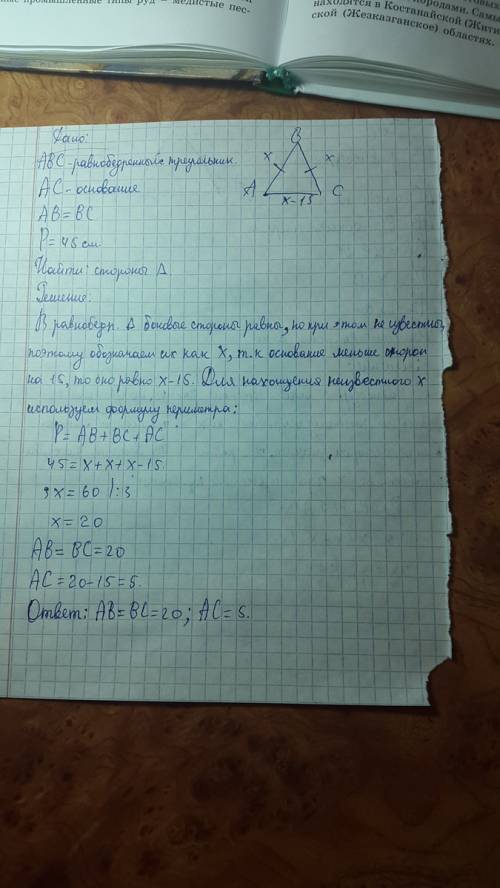 ные промышленные типы руд – медистые пес-
породами. Самы
находятся в Костанайской (Жити
ской (Жезказганское) областях.
Дано:
ABC - равнобедренный треугольник.
AC - основание
AB = BC
P = 45 см.
Найти: стороны Δ.
Решение.
В равнобедр. Δ боковые стороны равны, но при этом не известны,
поэтому обозначаем их как X, т.к основание меньше сторон
на 15, то оно равно x-15. Для нахождения неизвестного x
используем формулу периметра:
P = AB + BC + AC
45 = x + x + x - 15.
3x = 60 /:3
x = 20
AB = BC = 20
AC = 20 - 15 = 5.
Ответ: AB = BC = 20; AC = 5.
B
x x
A C
x - 15